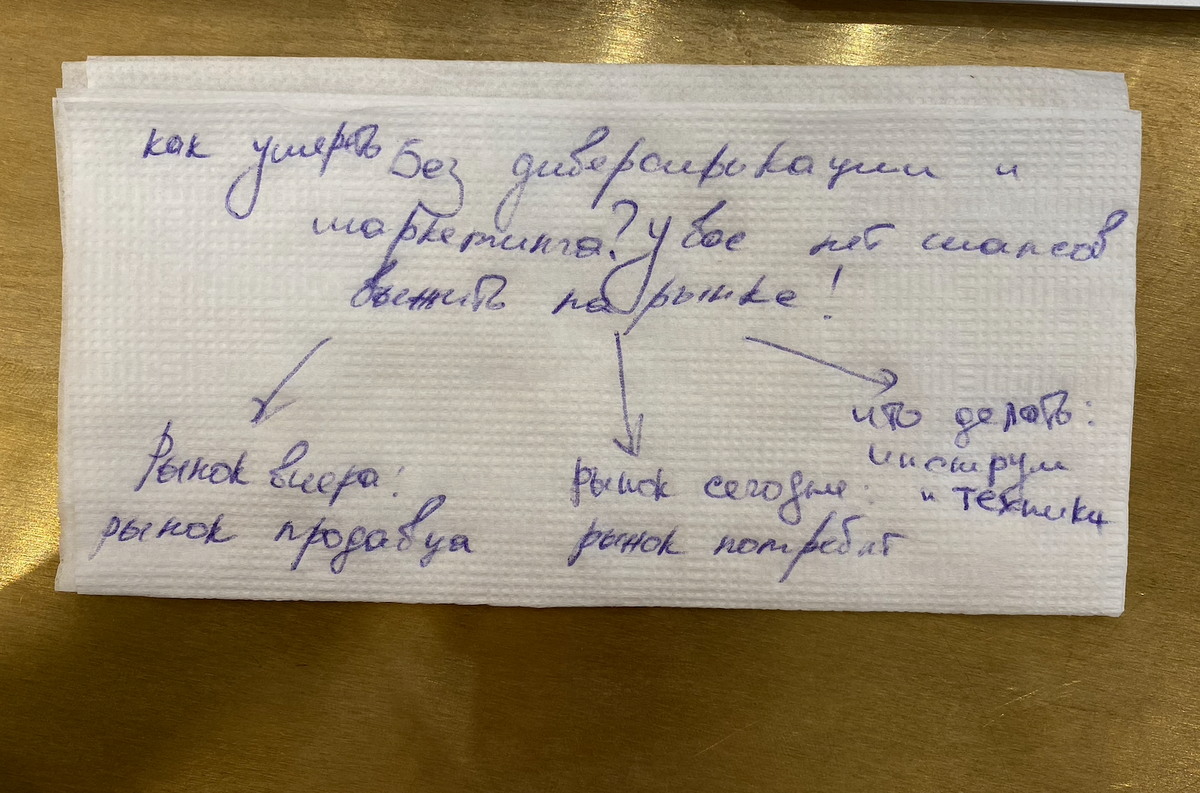 как умереть без диверсификации и
маркетинга? У вас нет шансов
выжить на рынке!
Рынок вчера:
рынок продавца
рынок сегодня:
рынок потребит
что делать:
инструм
и техники